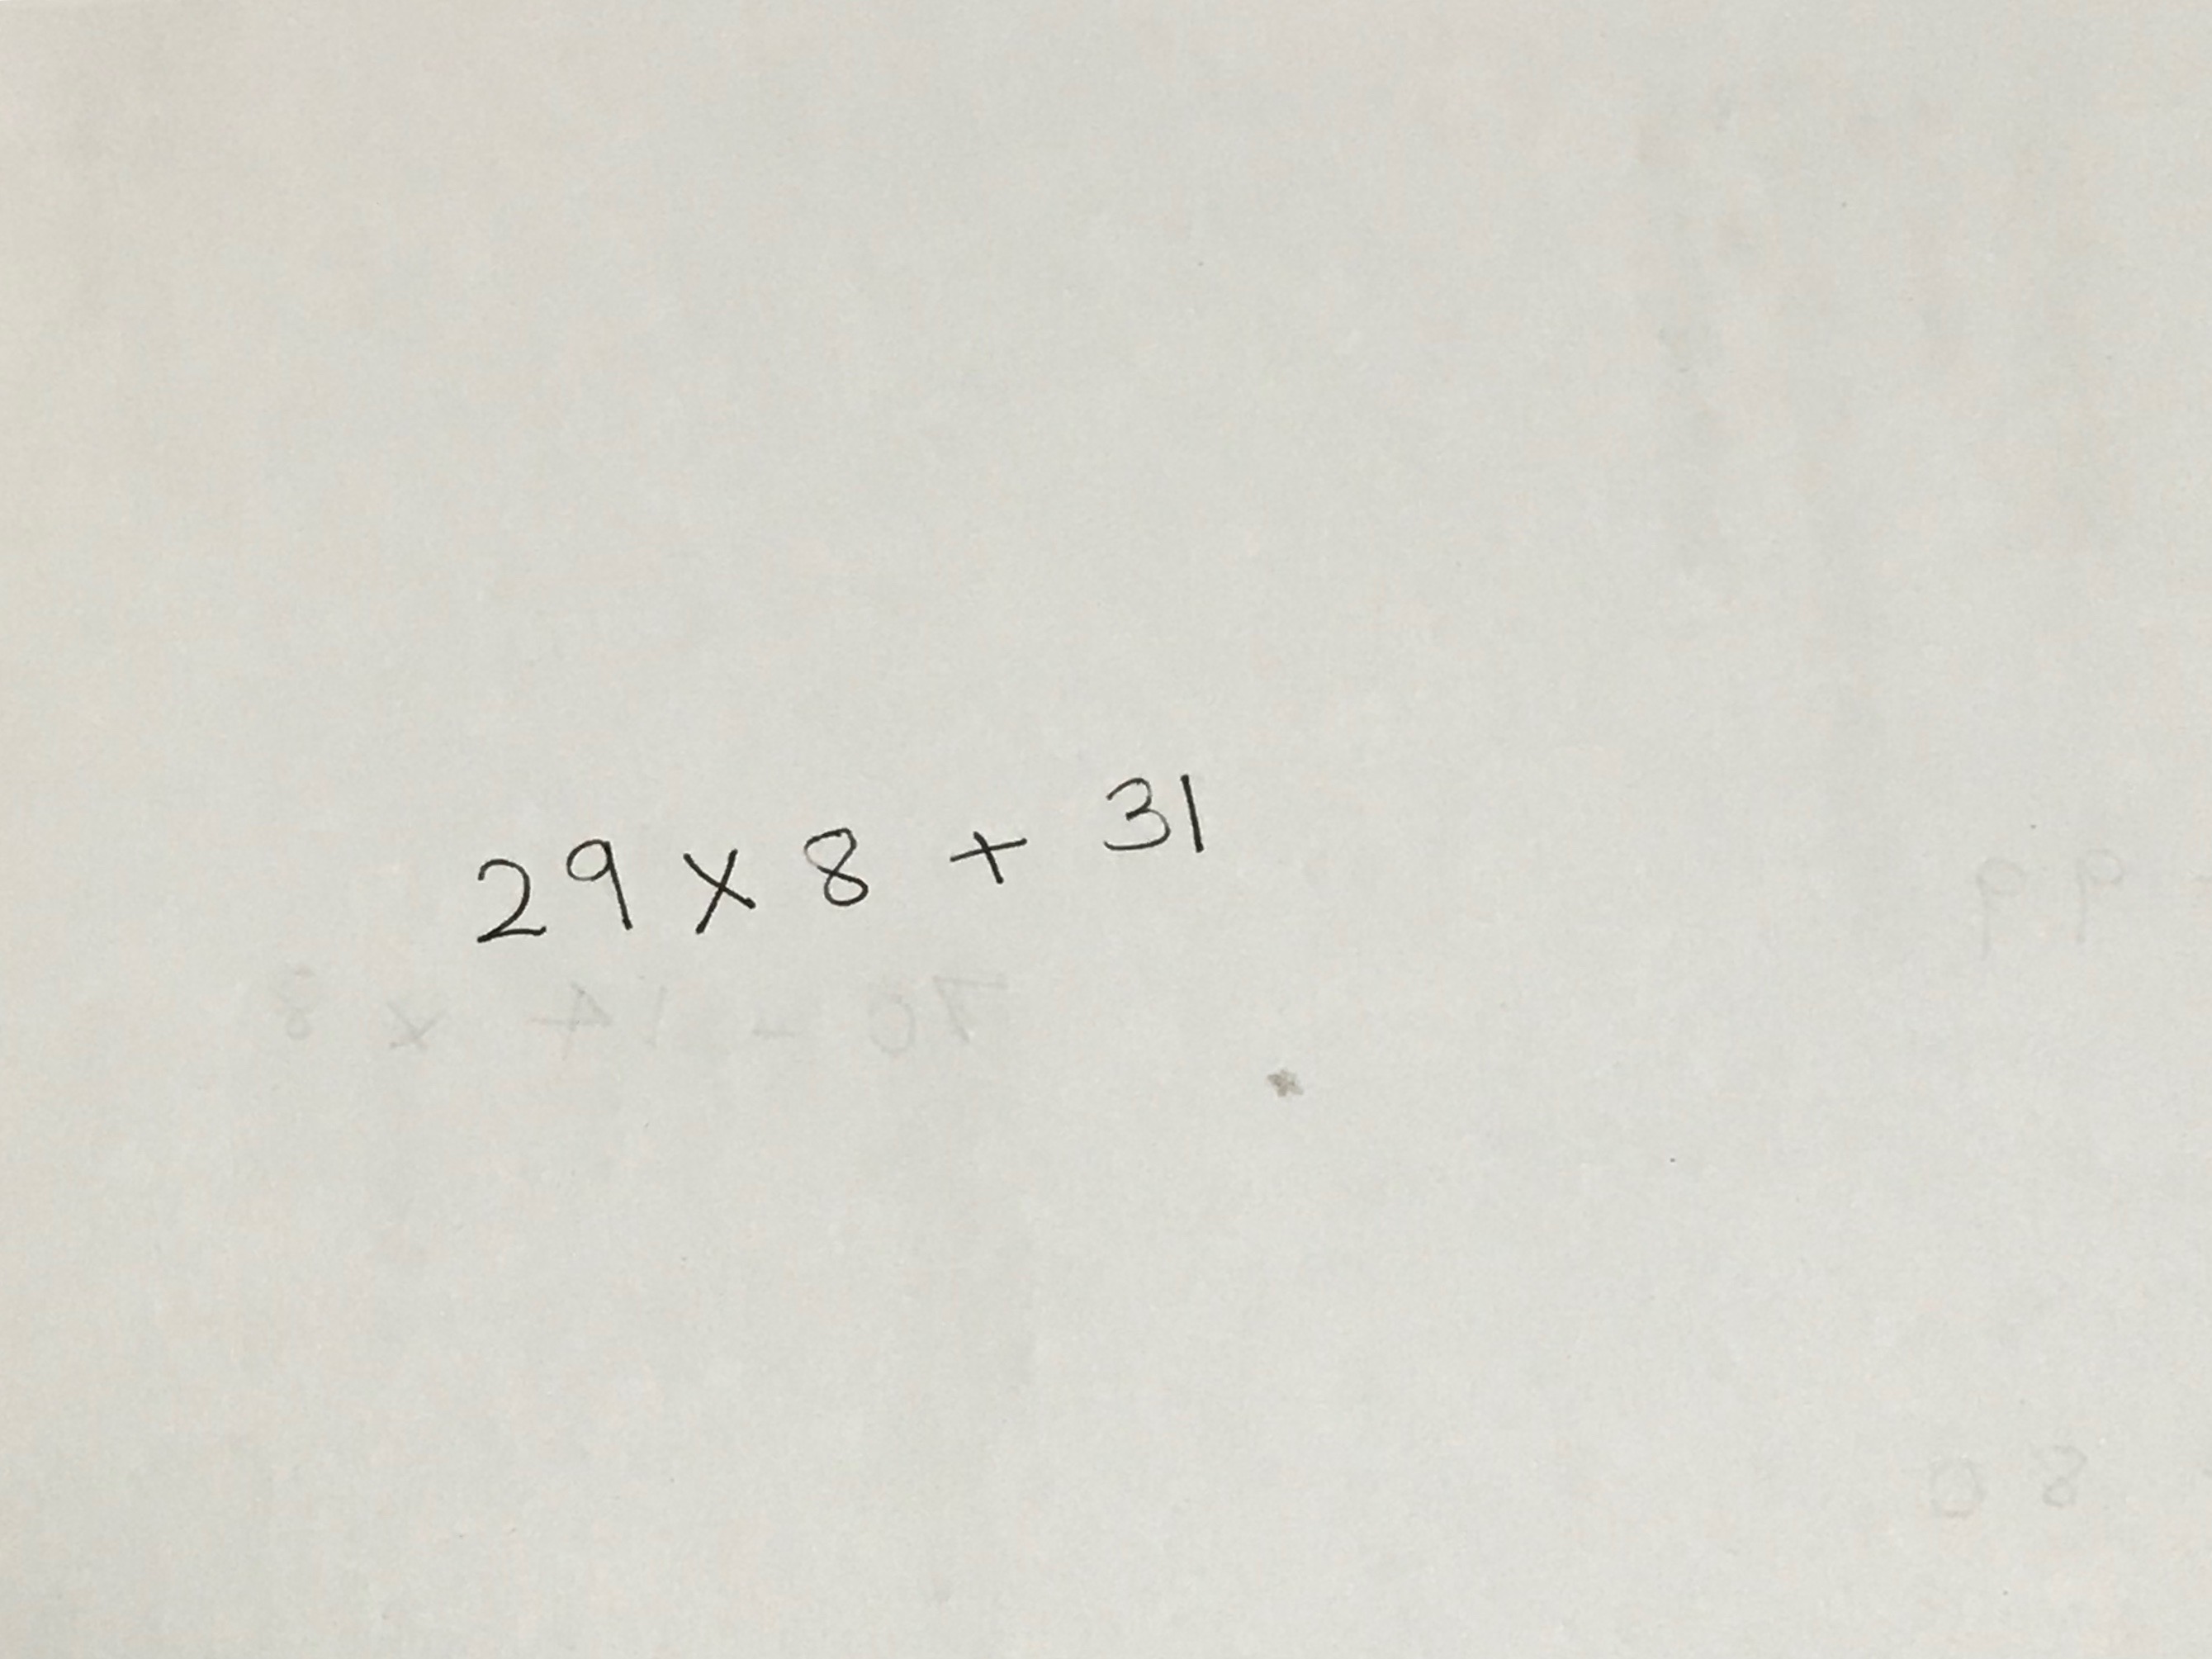 29 × 8 + 31